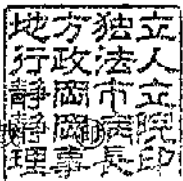 地方独立
行政法人
静岡市立
静岡病院
理事長印